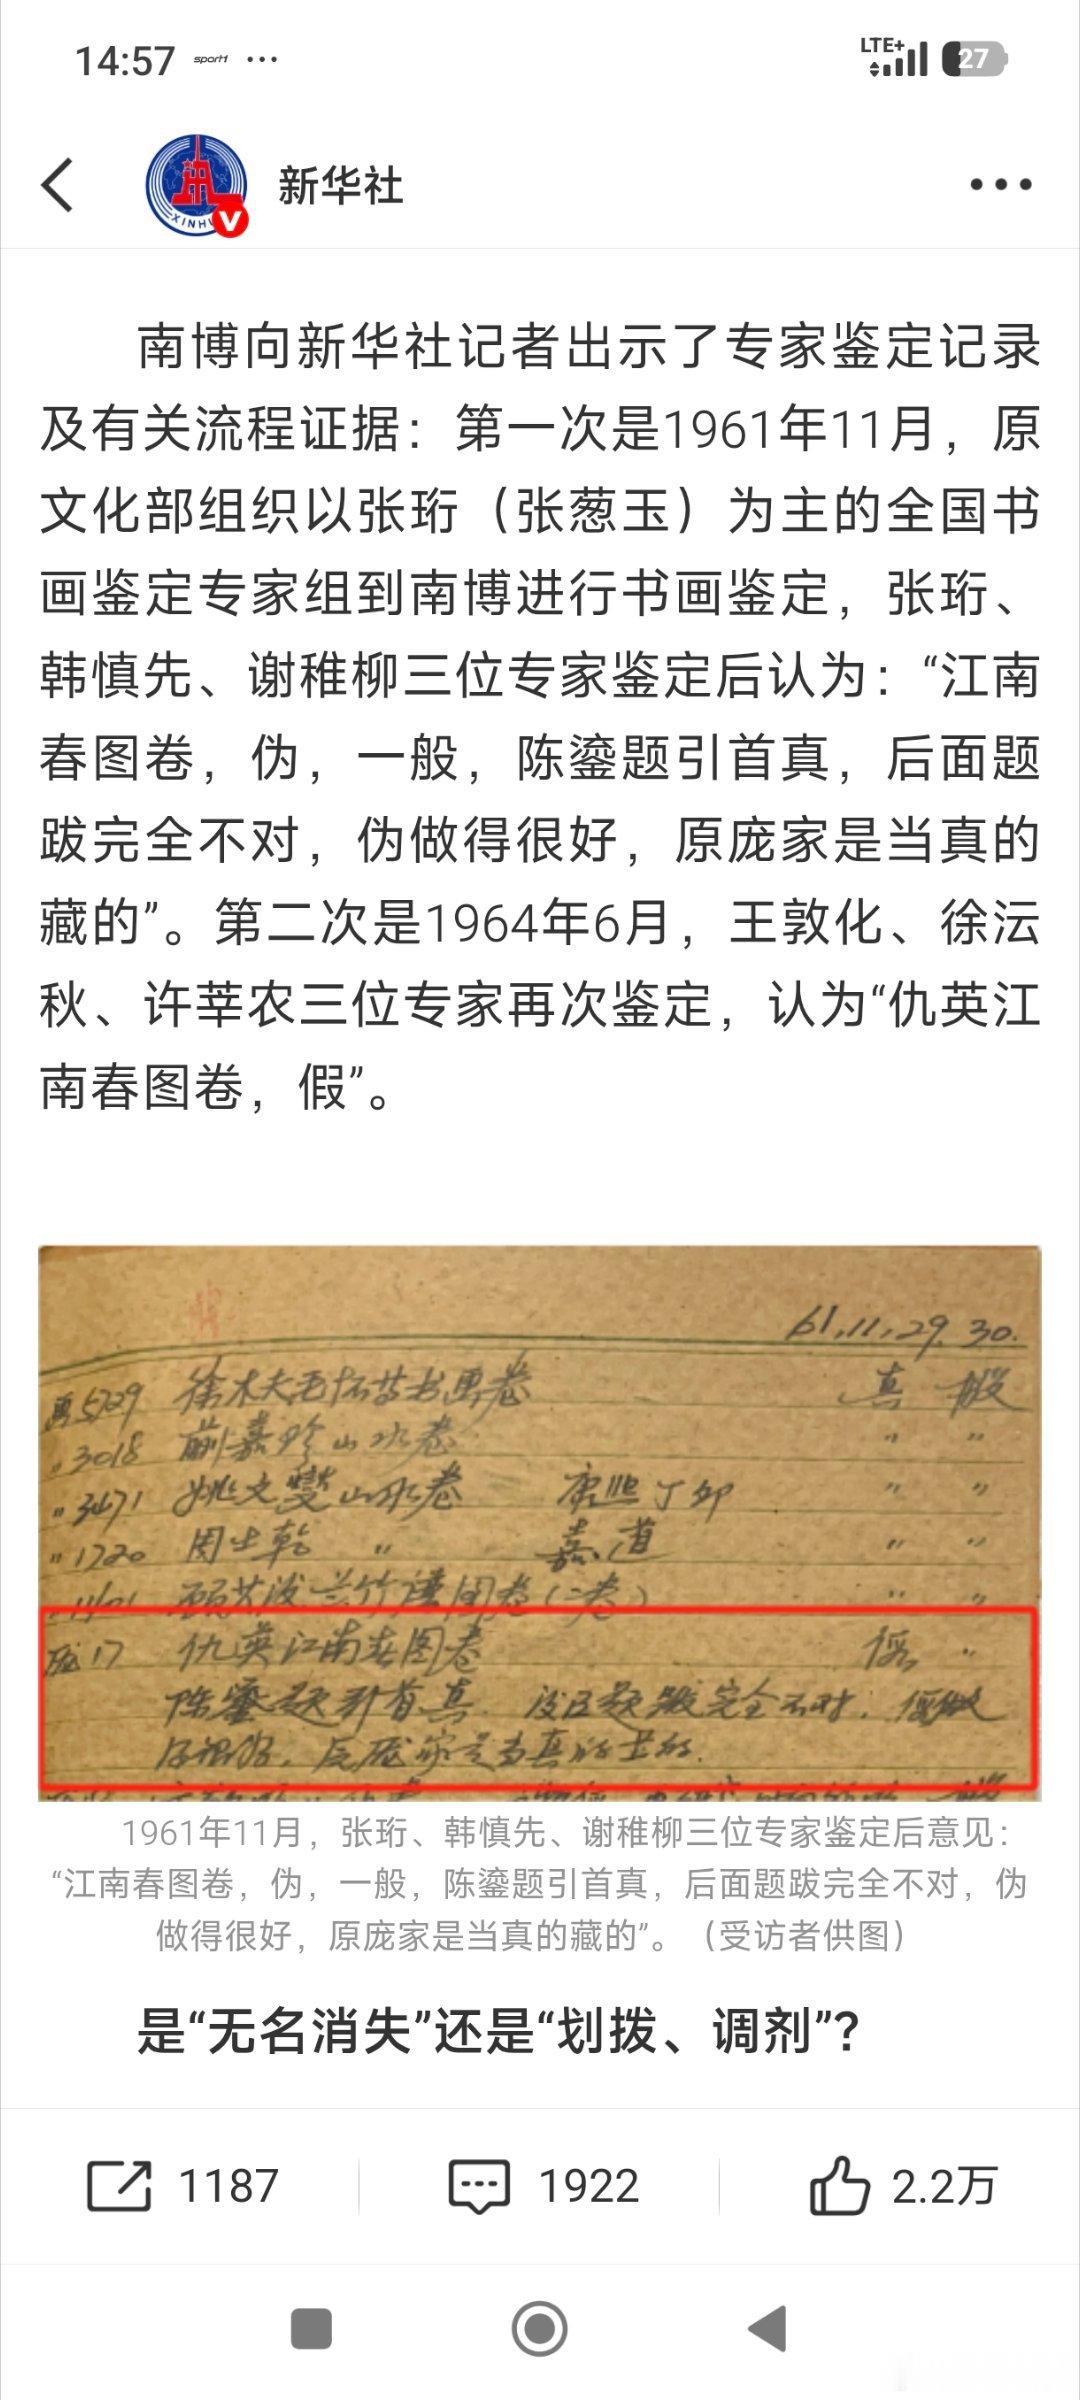 14:57 sport1 ...
LTE+ 27
新华社
XINHU
V
南博向新华社记者出示了专家鉴定记录
及有关流程证据：第一次是1961年11月，原
文化部组织以张珩（张葱玉）为主的全国书
画鉴定专家组到南博进行书画鉴定，张珩、
韩慎先、谢稚柳三位专家鉴定后认为：“江南
春图卷，伪，一般，陈鎏题引首真，后面题
跋完全不对，伪做得很好，原庞家是当真的
藏的”。第二次是1964年6月，王敦化、徐沄
秋、许莘农三位专家再次鉴定，认为“仇英江
南春图卷，假”。
61.11.29.30.
画5729 书画卷 真 一般
〃3018 山水卷 〃 〃
〃3471 姚文燮山水卷 康熙丁卯 〃 〃
〃1720 周生乾 〃 嘉道 〃 〃
图卷（二卷） 〃 〃
庞17 仇英江南春图卷 伪 〃
陈鎏题引首真 后面题跋完全不对，伪做
得很好，原庞家是当真的藏的.
1961年11月，张珩、韩慎先、谢稚柳三位专家鉴定后意见：
“江南春图卷，伪，一般，陈鎏题引首真，后面题跋完全不对，伪
做得很好，原庞家是当真的藏的”。（受访者供图）
是“无名消失”还是“划拨、调剂”？
1187 1922 2.2万